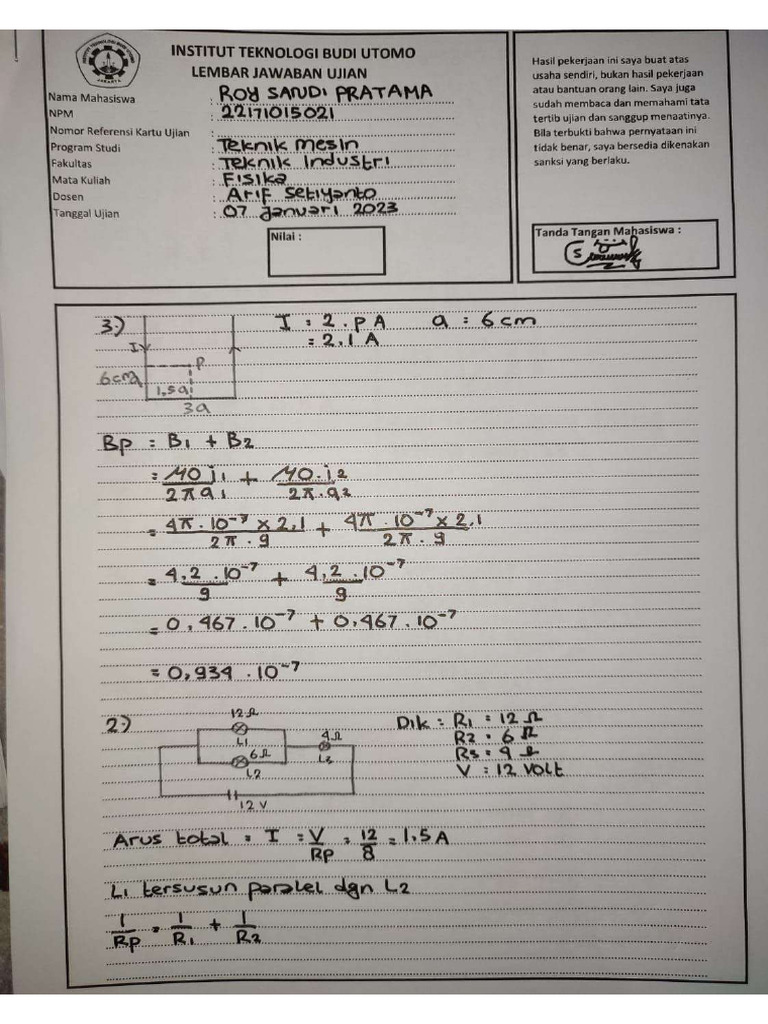 INSTITUT TEKNOLOGI BUDI UTOMO
LEMBAR JAWABAN UJIAN
Nama Mahasiswa : ROY SANDI PRATAMA
NPM : 22171015021
Nomor Referensi Kartu Ujian :
Program Studi : Teknik Mesin
Fakultas : Teknik Industri
Mata Kuliah : Fisika
Dosen : Arif Setiyanto
Tanggal Ujian : 07 Januari 2023
Nilai :
Hasil pekerjaan ini saya buat atas
usaha sendiri, bukan hasil pekerjaan
atau bantuan orang lain. Saya juga
sudah membaca dan memahami tata
tertib ujian dan sanggup menaatinya.
Bila terbukti bahwa pernyataan ini
tidak benar, saya bersedia dikenakan
sanksi yang berlaku.
Tanda Tangan Mahasiswa :
3.) I : 2.PA a = 6 cm
= 2.1 A
I
P
6 cm a
1,5a
3a
Bp = B1 + B2
= μo i1 / 2π a1 + μo.i2 / 2π.a2
= 4π.10⁻⁷ x 2,1 / 2π.9 + 4π.10⁻⁷ x 2,1 / 2π.9
= 4,2.10⁻⁷ / 9 + 4,2.10⁻⁷ / 9
= 0,467.10⁻⁷ + 0,467.10⁻⁷
= 0,934.10⁻⁷
2.)
12 Ω
L1
6 Ω
L2
4 Ω
L3
12 V
Dik = R1 = 12 Ω
R2 = 6 Ω
R3 = 4 Ω
V = 12 Volt
Arus total = I = V/Rp = 12/8 = 1.5 A
L1 tersusun paralel dgn L2
1/Rp = 1/R1 + 1/R2